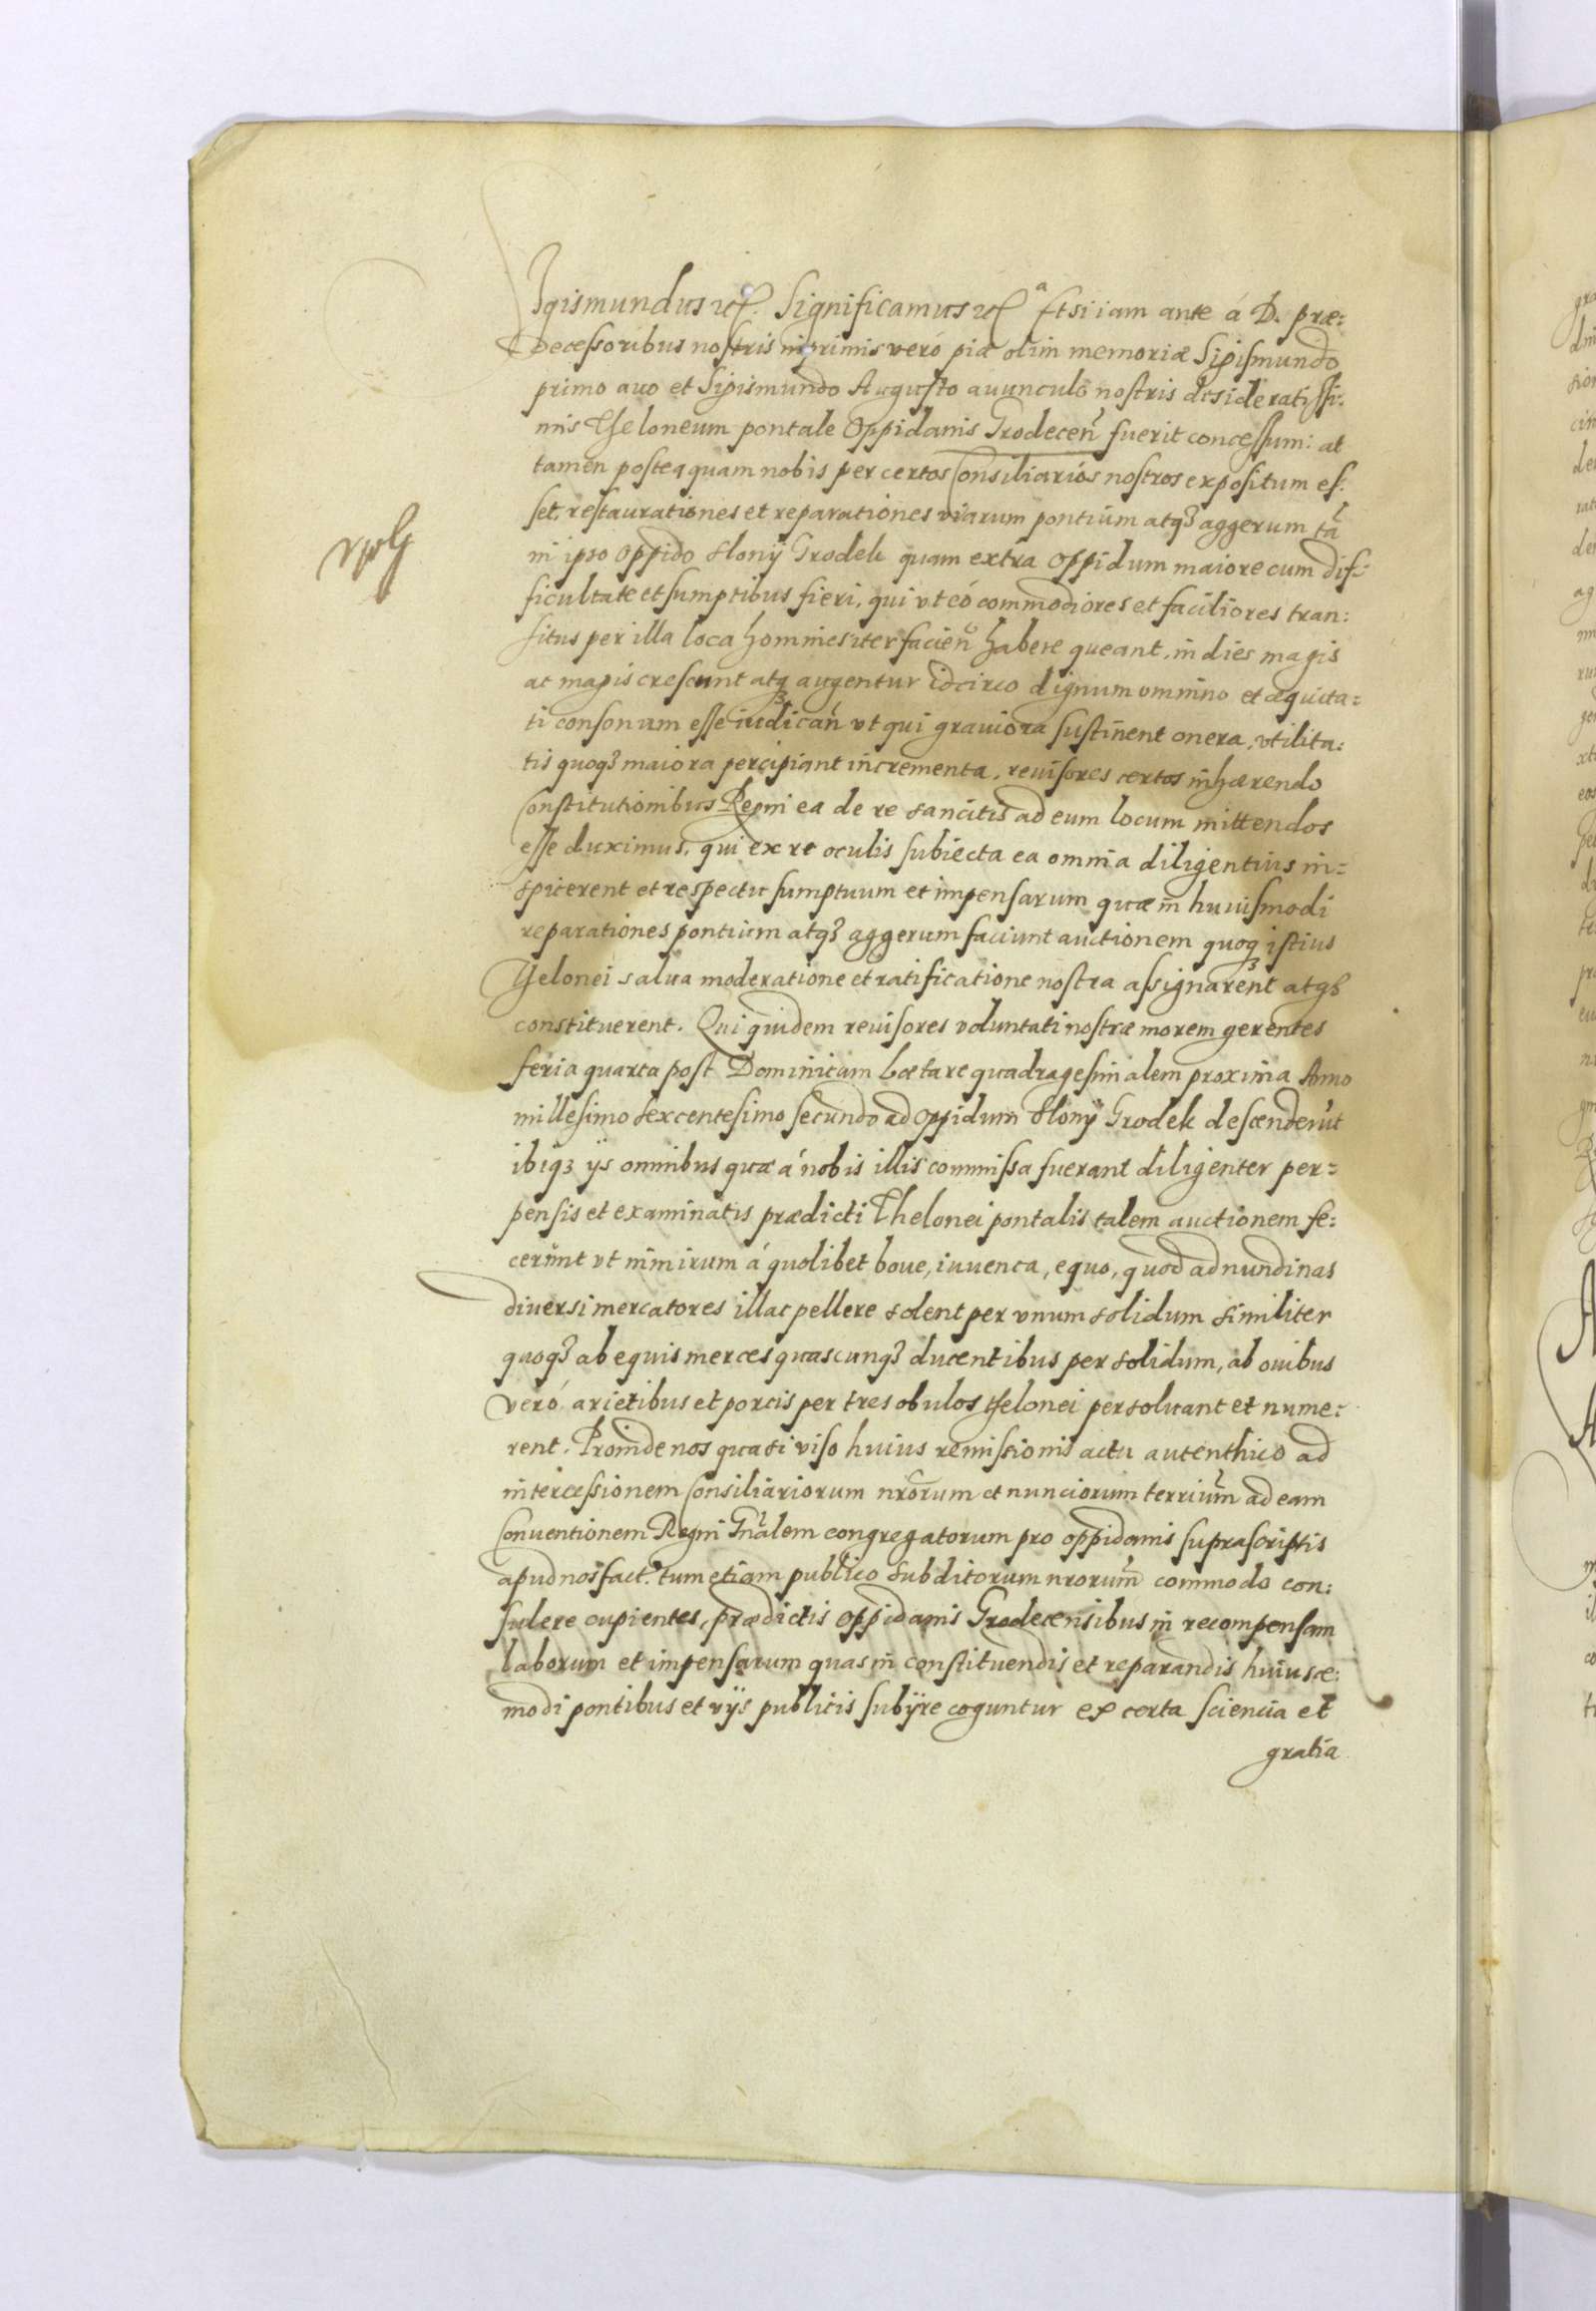 Igismundus etc. Significamus etc Etsi iam ante á D. præ:
decessoribus nostris inprimis veró piæ olim memoriæ Sigismundo
primo auo et Sigismundo Augusto auunculo nostris desideratissi:
mis Theloneum pontale Oppidanis Grodecen fuerit concessum: at
tamen posteaquam nobis per certos Consiliarios nostros expositum es:
set, restaurationes et reparationes viarum pontium atq3 aggerum tã
in ipso oppido Slony Grodek quam extra oppidum maiore cum dif:
ficultate et sumptibus fieri, qui vt eó commodiores et faciliores tran:
situs per illa loca homines iter facien habere queant, in dies magis
ac magis crescunt atq3 augentur idcirco dignum omnino et æquita=
ti consonum esse iudican vt qui grauiora sustinent onera, vtilita:
tis quoq3 maiora percipiant incrementa, reuisores certos inhærendo
Constitutionibus Regni ea de re sancitis ad eum locum mittendos
esse duximus, qui ex re oculis subiecta ea omnia diligentius in=
spicerent et respectu sumptuum et impensarum quæ in huiusmodi
reparationes pontium atq3 aggerum faciunt auctionem quoq3 istius
Thelonei salua moderatione et ratificatione nostra assignarent atq3
constituerent. Qui quidem reuisores voluntati nostræ morem gerentes
feria quarta post Dominicam Lætare quadragesimalem proxima Anno
millesimo sexcentesimo secundo ad oppidum Slony Grodek descenderũt
ibiq3 ijs omnibus quæ á nobis illis commissa fuerant diligenter per=
pensis et examinatis prædicti Thelonei pontalis talem auctionem fe:
cerunt vt nimirum á quolibet boue, iuuenca, equo, quod ad nundinas
diuersi mercatores illac pellere solent per vnum solidum similiter
quoq3 ab equis merces quascunq3 ducentibus per solidum, ab ouibus
veró arietibus et porcis per tres obulos thelonei persoluant et nume:
rent. Proinde nos quasi viso huius remissionis actu autenthico ad
intercessionem Consiliariorum nrorum et nunciorum terrium ad eam
Conuentionem Regni Gnalem congregatorum pro oppidanis suprascriptis
apud nos fact. tum etiam publico subditorum nrorum commodo con:
sulere cupientes, prædictis oppidanis Grodecensibus in recompensam
laborum et impensarum quas in constituendis et reparandis huiusce:
modi pontibus et vijs publicis subijre coguntur ex certa sciencia et
gratia